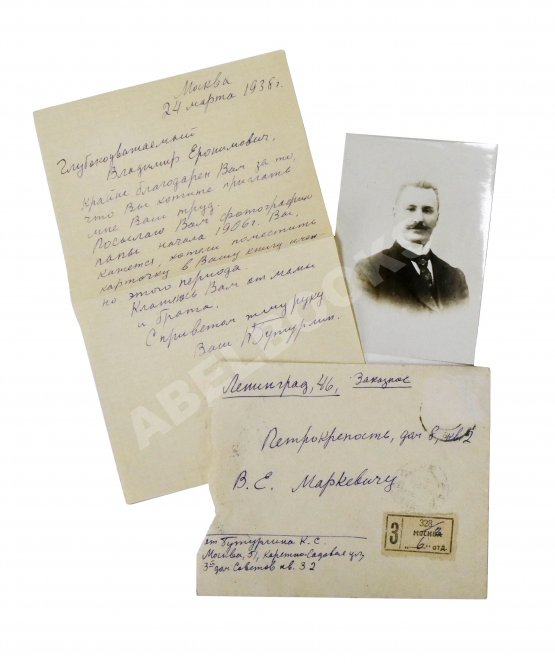 Москва
24 марта 1938 г.
Глубокоуважаемый
Владимир Еронимович,
Крайне благодарен Вам за то,
что Вы хотите прислать
мне Ваш труд.
Посылаю Вам фотографию
папы начала 1906 г. Вы,
кажется, хотели поместить
карточку в Вашу книгу имен-
но этого периода
Кланяюсь Вам от мамы
и брата.
С приветом жму руку
Ваш Бутурлин.
Ленинград, 46, Заказное
Петрокрепость, дом 8, кв 2
В. Е. Маркевичу
З
328
МОСКВА
6 отд.
от Бутурлина К. С.
Москва, 51, Каретно-Садовая ул,
3й дом Советов кв. 32
ABELBOOKS